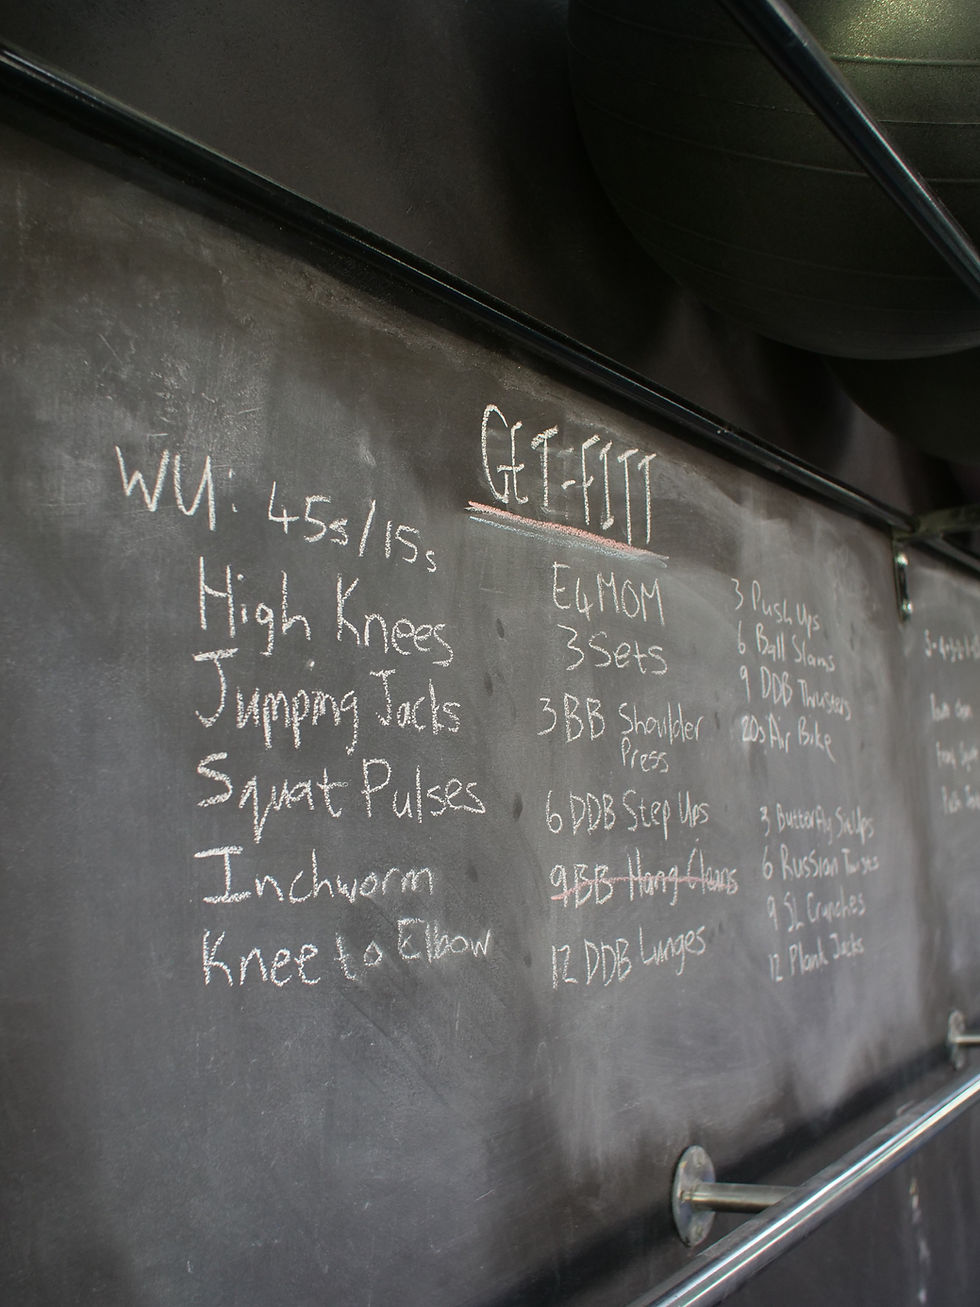 GET-FITT
WU: 45s/15s
High Knees
Jumping Jacks
Squat Pulses
Inchworm
Knee to Elbow
E4MOM
3 Sets
3 BB Shoulder
Press
6 DDB Step Ups
9 BB Hang Cleans
12 DDB Lunges
3 Push Ups
6 Ball Slams
9 DDB Thrusters
20s Air Bike
3 Butterfly Sit Ups
6 Russian Twists
9 SL Crunches
12 Plank Jacks